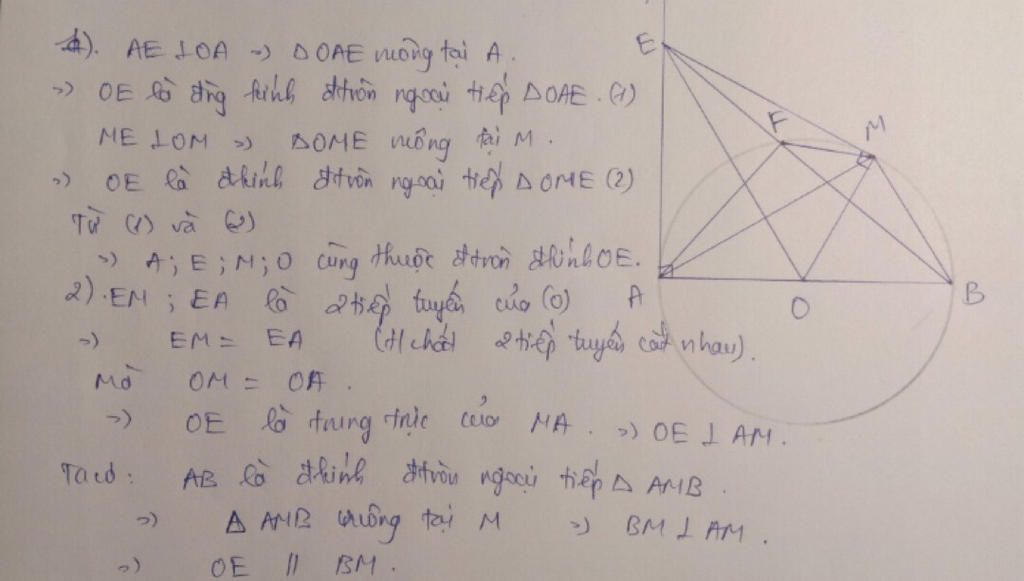 1). AE ⊥ OA => Δ OAE vuông tại A.
=> OE là đờng kính đtròn ngoại tiếp Δ OAE. (1)
ME ⊥ OM => Δ OME vuông tại M.
=> OE là đkính đtròn ngoại tiếp Δ OME (2)
Từ (1) và (2)
=> A; E; M; O cùng thuộc đtròn đkính OE.
2). EM; EA là 2 tiếp tuyến của (O)
=> EM = EA (t/chất 2 tiếp tuyến cắt nhau).
Mà OM = OA.
=> OE là trung trực của MA. => OE ⊥ AM.
Ta có: AB là đkính đtròn ngoại tiếp Δ AMB.
=> Δ AMB vuông tại M => BM ⊥ AM.
=> OE // BM.
E
F
M
A
O
B